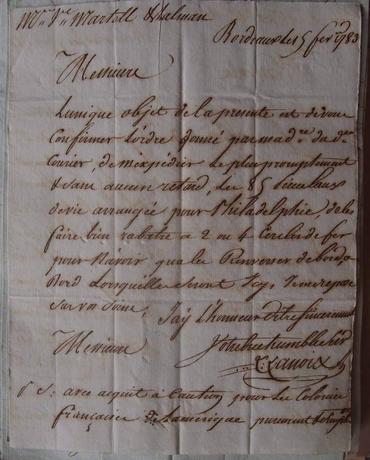 Mrs Vve Martell & Lalman
Bordeaux le 5 fevr 1783
Messieurs
L'unique objet de la presente est de vous
Confirmer l'ordre donné par mad
Courier, de m'expédier le plus promptement
& sans aucun retard, les 85 pieces Eaux
devie arrangées pour Philadelphie, de les
faire bien rabatre a 2 ou 4 Cercles de fer
pour N'avoir qua les Renverser de bord, a
Bord Lorsquelles seront Icy, Je me repose
sur vos soins,
J'ay L'honneur d'etre sincerement
Messieurs
Votre tres humble
P. S: avec acquit a Caution pour les Colonies
françaises de Lamerique